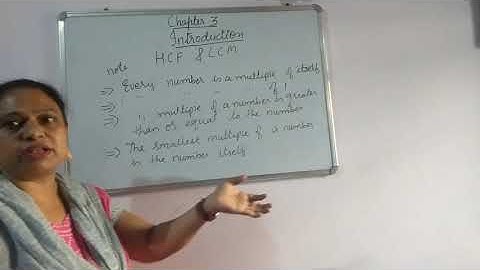 Chapter 3
Introduction
HCF & LCM
note
⇒ Every number is a multiple of itself
⇒ " " " " of 1
⇒ " multiple of a number is greater
than or equal to the number
⇒ The smallest multiple of a number
is the number itself